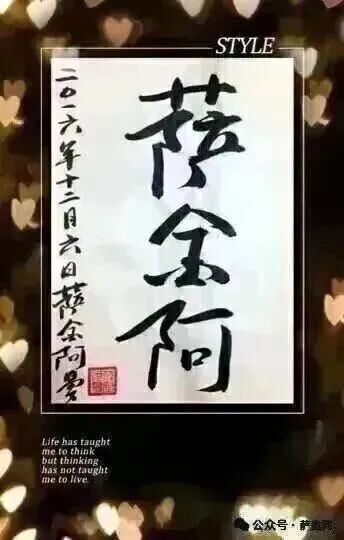 STYLE
萨金阿
二〇一六年十二月六日萨金阿
Life has taught
me to think
but thinking
has not taught
me to live.
公众号 · 萨金阿